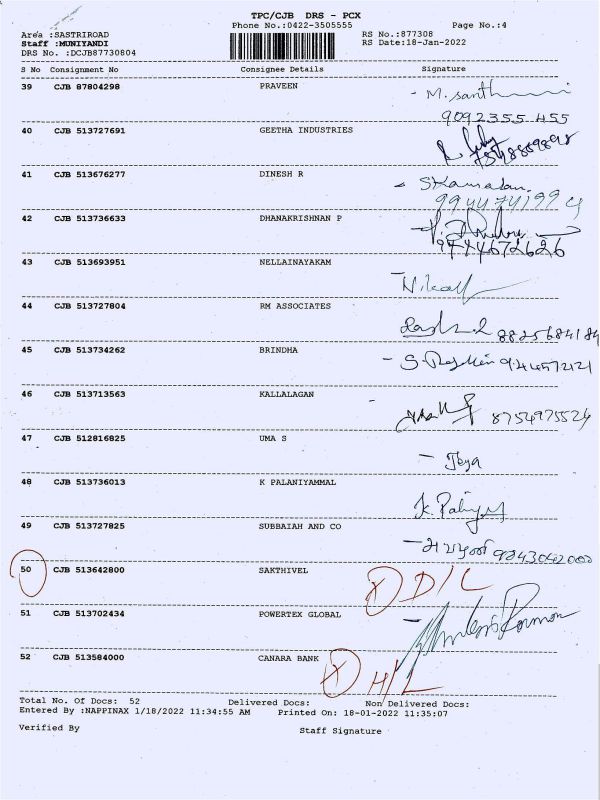 TPC/CJB DRS - PCX
Phone No.:0422-3505555 Page No.:4
Area :SASTRIROAD RS No.:877308
Staff :MUNIYANDI RS Date:18-Jan-2022
DRS No. :DCJB87730804
S No Consignment No Consignee Details Signature
39 CJB 87804298 PRAVEEN
9092355455
40 CJB 513727691 GEETHA INDUSTRIES
41 CJB 513676277 DINESH R
42 CJB 513736633 DHANAKRISHNAN P
43 CJB 513693951 NELLAINAYAKAM
44 CJB 513727804 RM ASSOCIATES
8825684184
45 CJB 513734262 BRINDHA
46 CJB 513713563 KALLALAGAN
8754975524
47 CJB 512816825 UMA S
Jeya
48 CJB 513736013 K PALANIYAMMAL
49 CJB 513727825 SUBBAIAH AND CO
50 CJB 513642800 SAKTHIVEL
X D/L
51 CJB 513702434 POWERTEX GLOBAL
52 CJB 513584000 CANARA BANK
X H/L
Total No. Of Docs: 52 Delivered Docs: Non Delivered Docs:
Entered By :NAPPINAX 1/18/2022 11:34:55 AM Printed On: 18-01-2022 11:35:07
Verified By Staff Signature